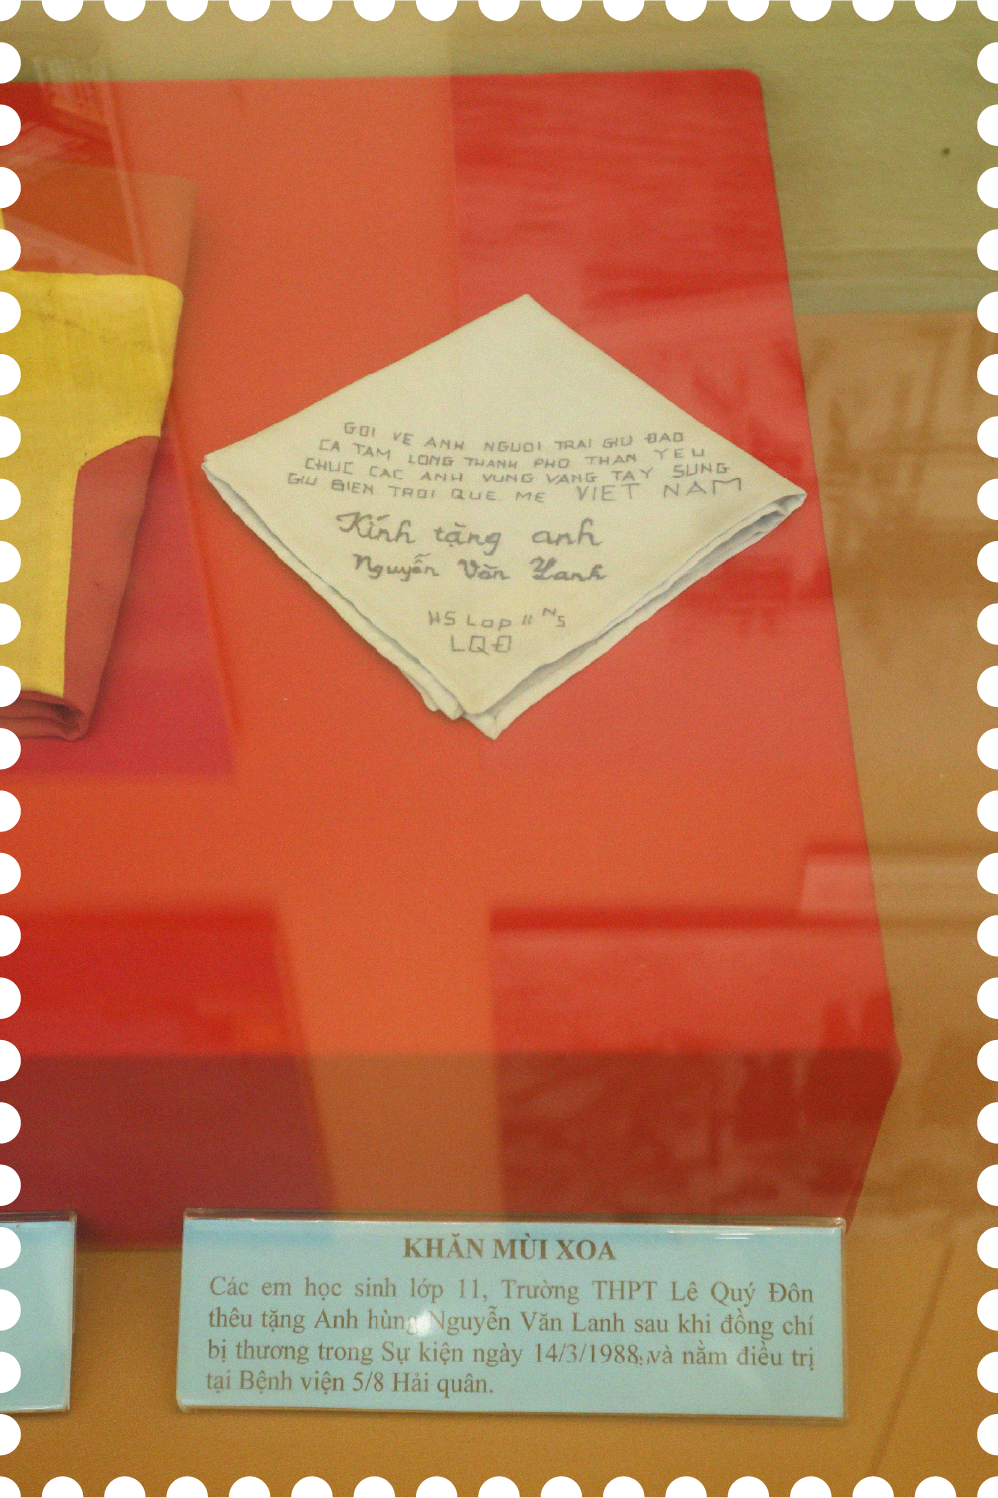 GOI VE ANH NGUOI TRAI GIU ĐAO
CA TAM LONG THANH PHO THAN YEU
CHUC CAC ANH VUNG VANG TAY SUNG
GIU BIEN TROI QUE ME VIET NAM
Kính tặng anh
Nguyễn Văn Lanh
HS Lop 11 N5
LQĐ
KHĂN MÙI XOA
Các em học sinh lớp 11, Trường THPT Lê Quý Đôn
thêu tặng Anh hùng Nguyễn Văn Lanh sau khi đồng chí
bị thương trong Sự kiện ngày 14/3/1988, và nằm điều trị
tại Bệnh viện 5/8 Hải quân.